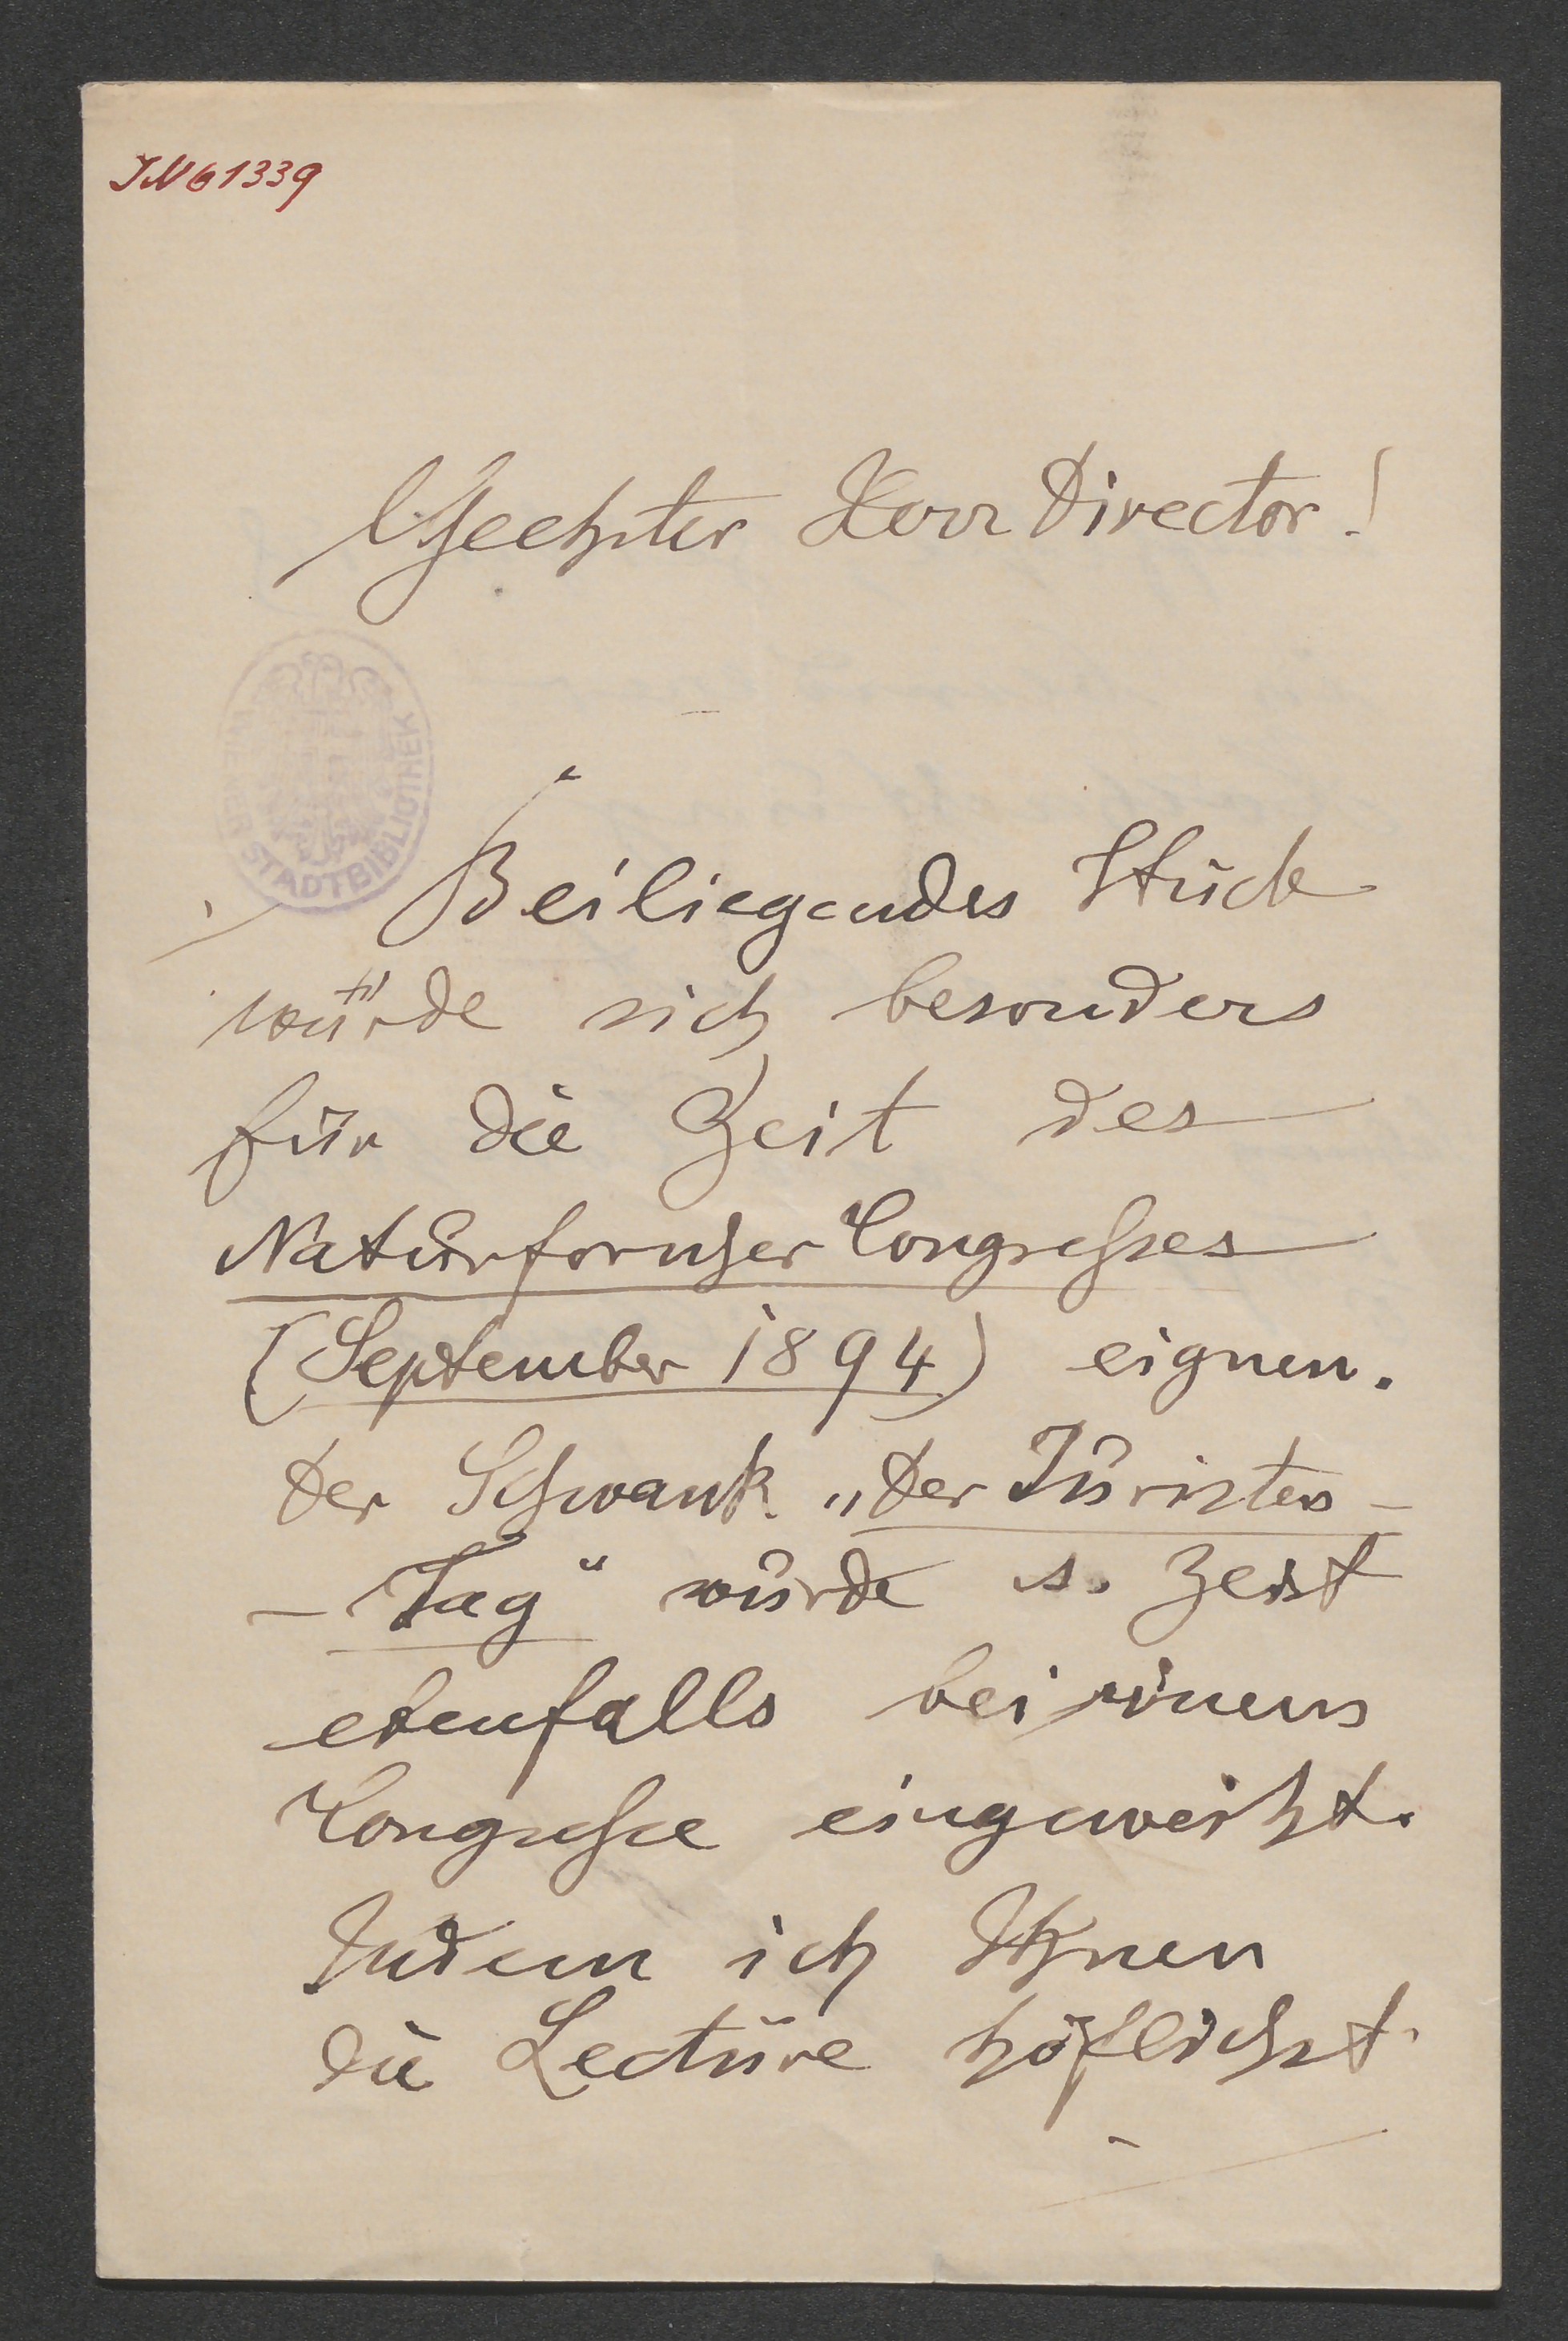 JN 61339
Geehrter Herr Director!
WIENER STADTBIBLIOTHEK
Beiliegendes Stück
würde sich besonders
für die Zeit des
Naturforscher Congresses
(September 1894) eignen.
Der Schwank „Der Juristen-
-Tag“ wurde s. Zeit
ebenfalls bei einem
Congresse eingeweiht.
Indem ich Ihnen
die Lectüre höflichst